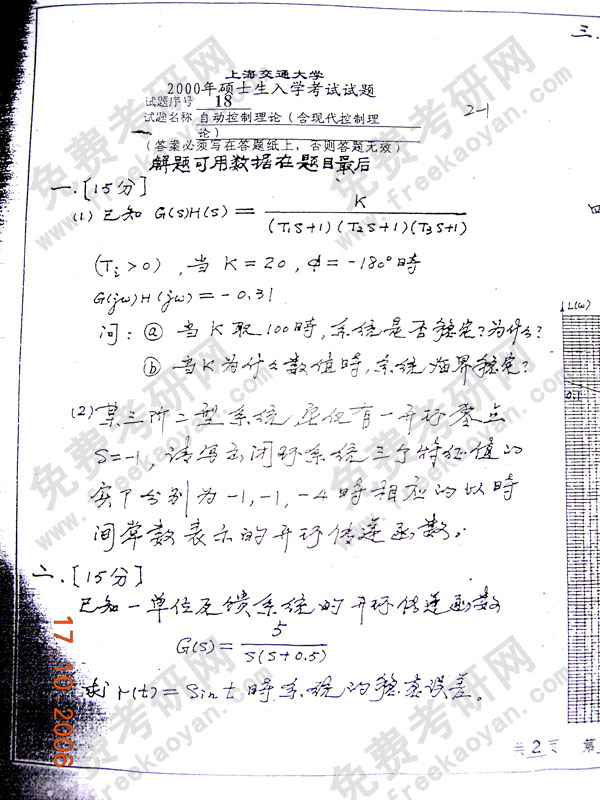 三.
上海交通大学
2000年硕士生入学考试试题
试题序号 18
试题名称 自动控制理论（含现代控制理
论）
2-1
（答案必须写在答题纸上，否则答题无效）
解题可用数据在题目最后
一.[15分]
(1) 已知 G(s)H(s) = K / (T₁S+1)(T₂S+1)(T₃S+1)
(Tᵢ>0)，当 K=20，φ=-180°时
G(jω)H(jω)=-0.31
问：ⓐ 当K取100时，系统是否稳定？为什么？
ⓑ 当K为什么数值时，系统临界稳定？
(2) 某三阶二型系统，仅有一开环零点
S=-1，请写出闭环系统三个特征值的
实部分别为-1,-1,-4时相应的以时
间常数表示的开环传递函数。
二.[15分]
已知一单位反馈系统的开环传递函数
G(S) = 5 / S(S+0.5)
求r(t)=Sint时系统的稳态误差。
共2页 第
L(ω)
0.1
17 10 2006
免费考研网
www.freekaoyan.com